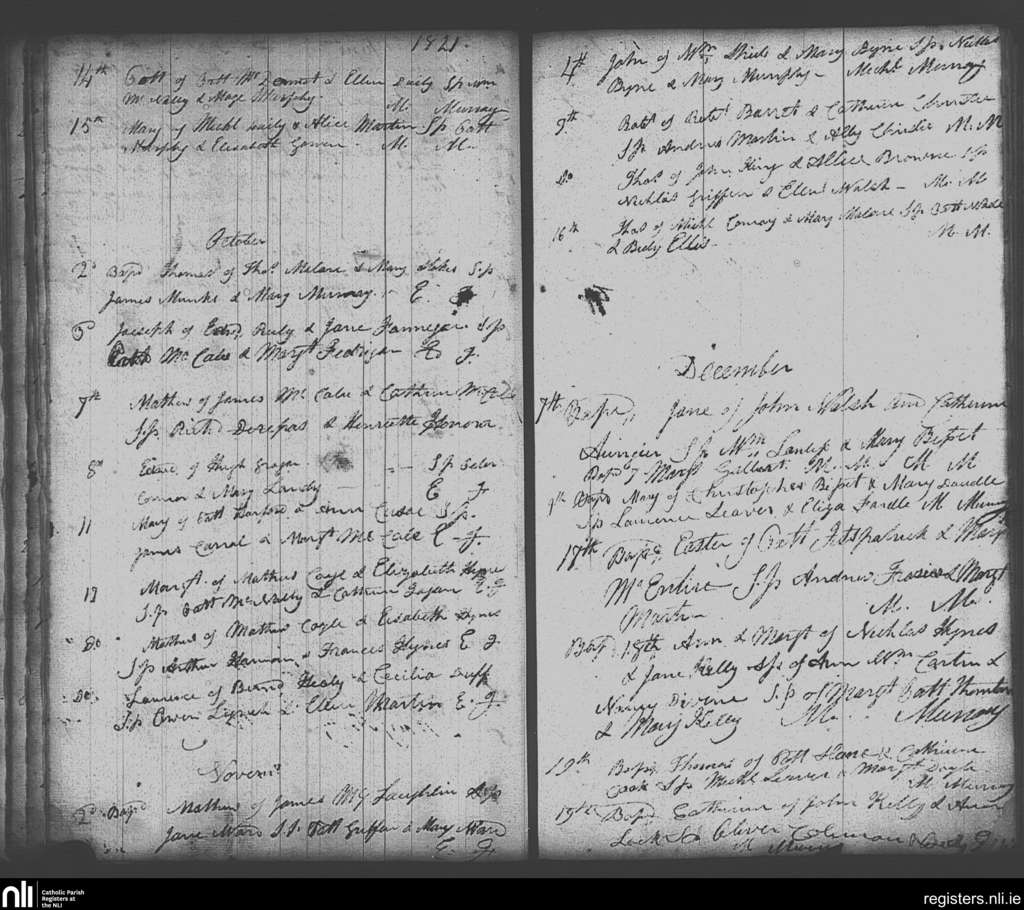 1821.
14th Patt of Patt Mc Dermot & Ellen Daily Sp Wm
McNally & Mage Murphy. M. Murray
15th Mary of Michl Daily & Alice Martin Sp Patt
Murphy & Elisabeth M. M.
October
2d Bapd Thomas of Thos Malone & Mary Sp
James & Mary Murray. E. F.
5 Joiseph of Edwd Rely & Jane Sp
Patt Mc Cabe & Margt E F.
7th Mathew of James Mc Cabe & Cathrin
Sp Richd & Henrietta Honora
8th of Hugh Grogan Sp Peter
Connor & Mary Landy E F
11 Mary of Patt Harford & Ann Cusac Sp.
James Carral & Margt Mc Cabe E F.
13 Margt. of Mathew Coyle & Elizabeth
Sp Patt McNally & Cathrin Fagan E F
Do Mathew of Mathew Coyle & Elisabeth Hynes
Sp Arthur & Frances Hynes E F
Do Laurence of Bernd Healy & Cecilia Duff
Sp Owen Lynch & Ellen Martin E. F.
Novemr
2d Bapd Mathew of James McLaughlin &
Jane Ward S.P. Patt Griffan & Mary Ward
E. F.
4th John of Wm Shiels & Mary Byrne Sp Nichs
Byrne & Mary Murphy - Michl Murray
9th Robt of Robt Barret & Catherin
Sp Andrew Martin & Alley M. M
Do Thos of John King & Allice Browne Sp
Nichlas Griffen & Ellen Walsh - M. M
16th Thos of Michl Conroy & Mary Malone Sp Patt
& Bidy Ellis - M. M.
December
7th Bapd, Jane of John Walsh and Catherine
Sp Wm & Mary Bisset
Bapd 7 Margt Gilbert M. M. M M
9th Bapd Mary of Christopher Bisset & Mary
Sp Laurence Leaver & Eliza Fardle M Murray
17th Bapd, Easter of Patt Fitspatrick & Margt
Mc Entire Sp Andrew Frasier & Margt
Martin M. M.
Bapd 18th Ann & Margt of Nichlas Hynes
& Jane Kelly Sps of Ann Wm Cartin &
Nancy Sp of Margt Patt Thornton
& Mary Kelly M. Murray
19th Bapd, Thomas of Patt & Cathrine
Cook Sp Michl Leaver & Margt Doyle
M Murray
19th Bapd, Catherin of John Kelly & Ann
Lock Sp Oliver Coleman
M Murray
nli
Catholic Parish
Registers at
the NLI
registers.nli.ie